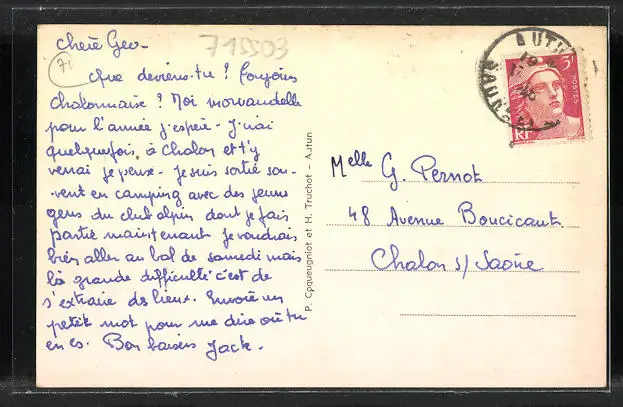 Chère Geo-
715503
71
Que deviens-tu ? Toujours
chalonnaise ? Moi morvandelle
pour l'année j'espère - J'irai
quelquefois à Chalon et t'y
verrai je pense - Je suis sortie sou-
vent en camping avec des jeunes
gens du club alpin dont je fais
partie maintenant Je voudrais
bien aller au bal de samedi mais
la grande difficulté c'est de
s'extraire des lieux. Envoie un
petit mot pour me dire où tu
en es. Bons baisers Jack.
P. Coqueugniot et H. Truchot - Autun
AUTUN
3F
POSTES
RF
Melle G. Pernot
48 Avenue Boucicaut.
Chalon s/ Saône